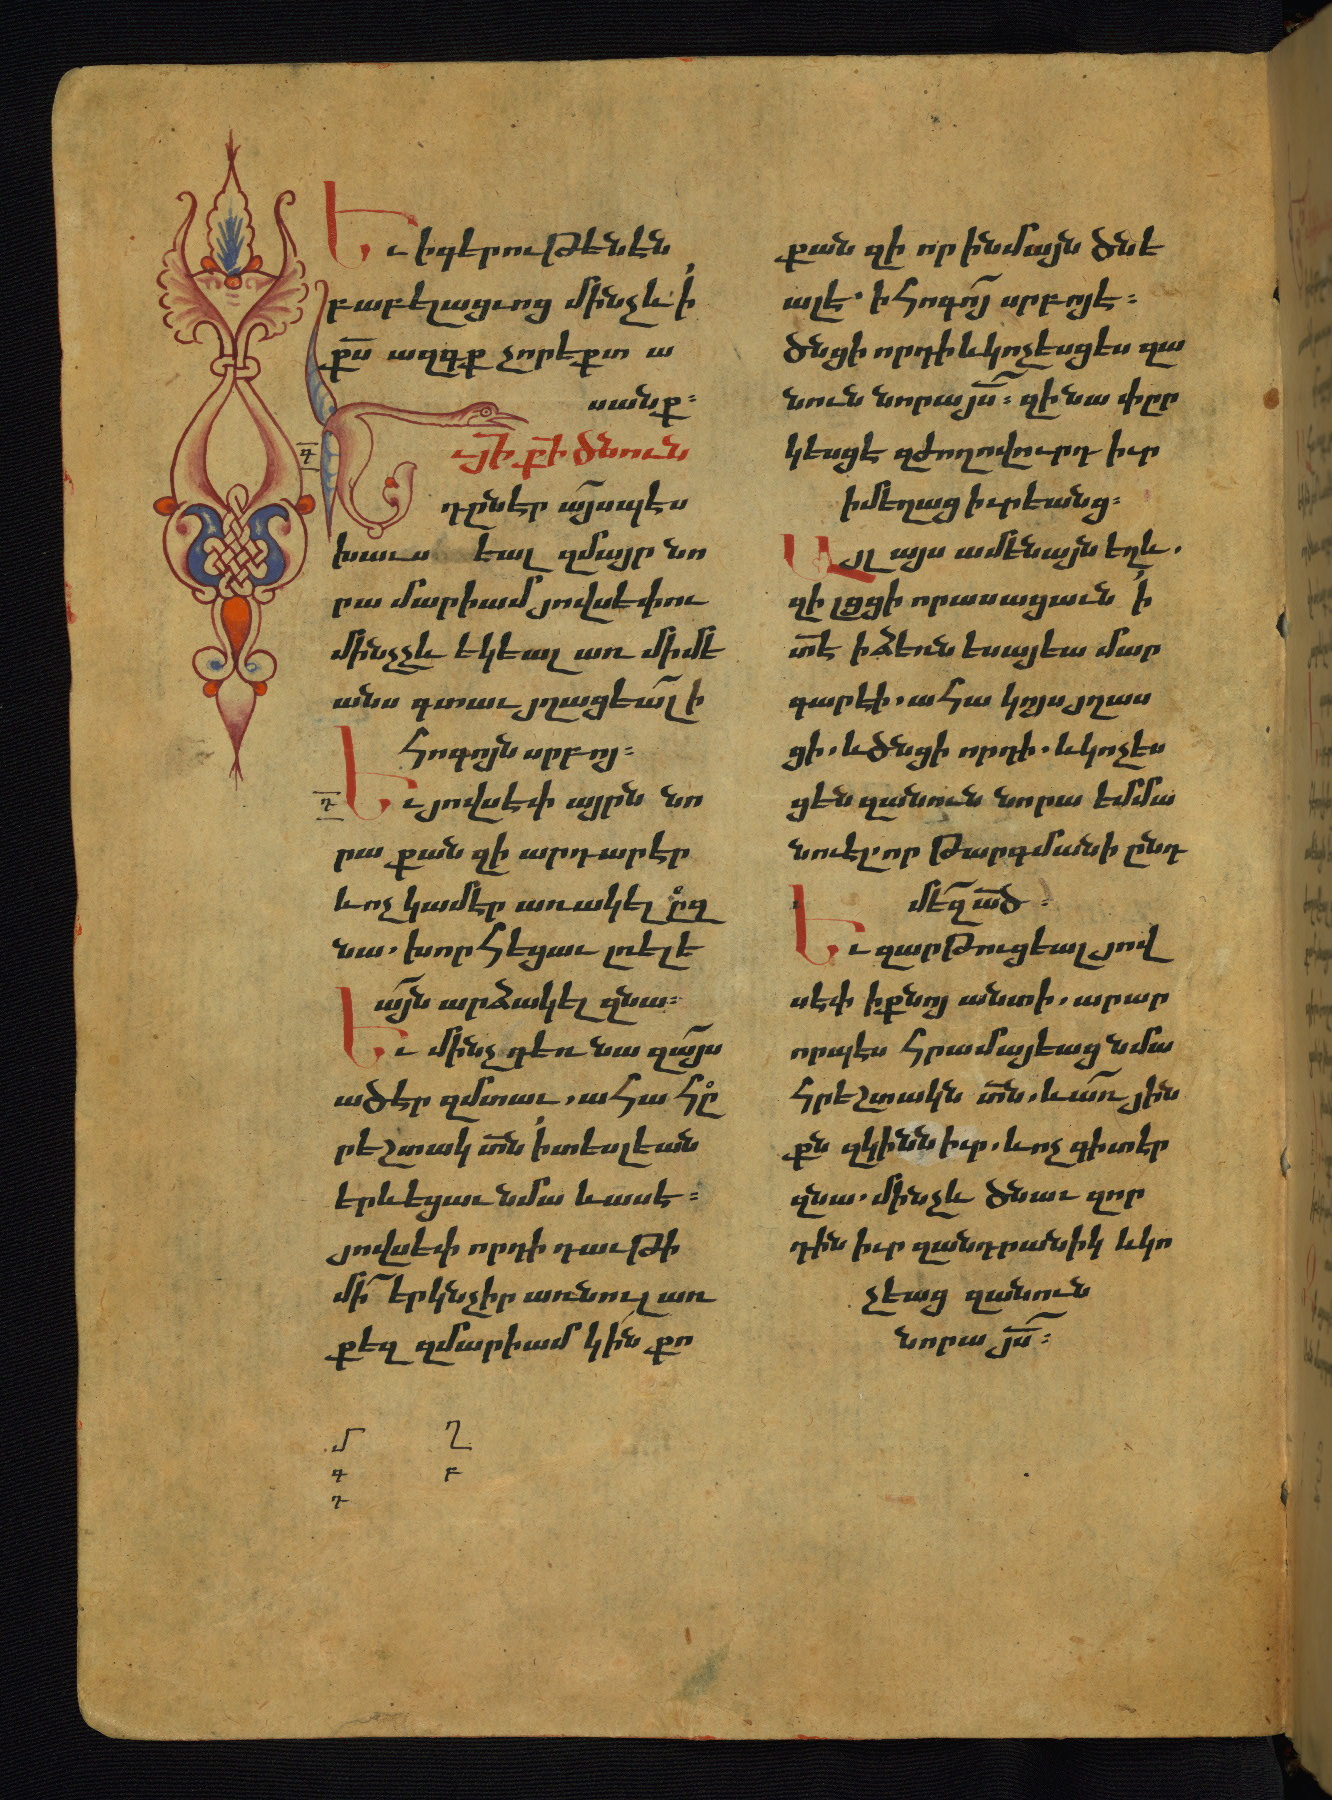 Եւ ի գէրութենէն
բաբելացւոց մինչև ՛ի
քս ազգք չորեքտ ա
սանք։
Յի քի ծնուն
դընէր այսպէս
խաւս եալ զմայր նո
րա մարիամ յովսեփու
մինչչև եկեալ առ միմե
անս գտաւ յղացեալ ի
հոգոյն սրբոյ։
Եւ յովսէփ այրն նո
րա քան զի արդար էր
և ոչ կամէր առակել ըզ
նա. խորհեցաւ լռելե
այն արձակել զնա։
Եւ մինչ դեռ նա զայս
ածէր զմտաւ. ահա հը
րեշտակ տն ՛ի տեսլեան
երևեցաւ նմա և ասէ։
յովսէփ որդի դաւթի
մի երկնչիր առնուլ առ
քեզ զմարիամ կին քո
քան զի որ ինմայն ծնե
ալէ. ի հոգոյ սրբոյէ։
ծնցի որդի և կոչեսցես զա
նուն նորա յս։ զի նա փըր
կեսցէ զժողովուրդ իւր
իմեղաց իւրեանց։
Այլ այս ամենայն եղև.
զի լցցի որ ասացաւն ՛ի
տէ ի ձեռն եսայեա մար
գարէի. ահա կոյս յղաս
ցի. և ծնցի որդի. և կոչես
ցեն զանուն նորա էմմա
նուէլ որ թարգմանի ընդ
մեզ ած։
Եւ զարթուցեալ յով
սէփ ի քնոյ անտի. արար
որպես հրամայեաց նմա
հրեշտակն տն. և առ յին
քն զկինն իւր. և ոչ գիտէր
զնա. մինչև ծնաւ զոր
դին իւր զանդրանիկ և կո
չեաց զանուն
նորա յս։
գ
դ
մ ղ
գ բ
դ